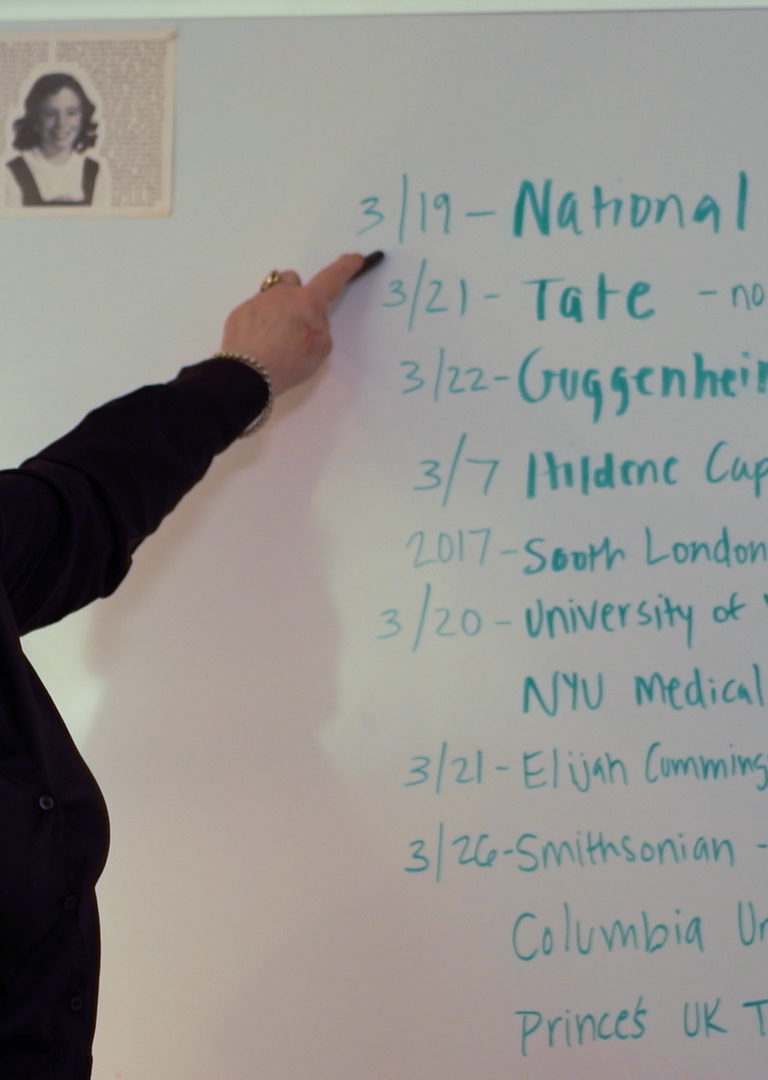 3/19 - National
3/21 - Tate - no
3/22 - Guggenheim
3/7 Hildene Cap
2017 - South London
3/20 - University of
NYU Medical
3/21 - Elijah Cummings
3/26 - Smithsonian -
Columbia Un
Prince's UK T